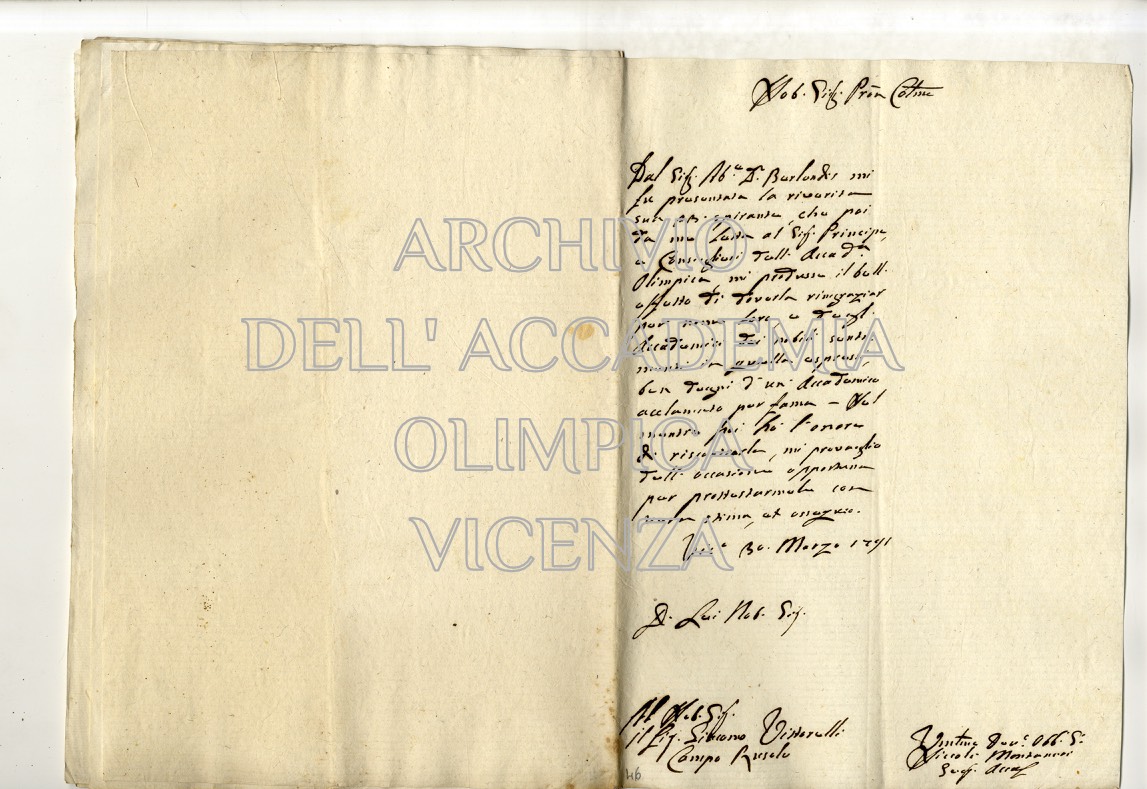 Nob. Sig. Pròn Colmo
Dal Sig. Ab.e D.r Barlondis mi
fu presentata la riverita
sua che poi
da me letta al Sig. Principe,
e Consiglieri dell' Accad.a
Olimpica, mi produsse il bell
effetto di doverla ringraziar
per nome loro e degl'
Accademici dei nobili senti-
menti in quella espressi,
ben degni d'un Accademico
acclamato per fama - Nel
mentre poi hò l'onore
di riscontrarla, mi prevaglio
dell' occasione opportuna
per protestarmele con
stima, et ossequio.
Vic.a 30. Marzo 1791
D. Lei Nob. Sig.
Al Nob. Sig.
il Sig. Giacomo Vittorelli
Campo
46
Dev. Obb. S.
Niccolò
Seg. Accad
ARCHIVIO
DELL' ACCADEMIA
OLIMPICA
VICENZA